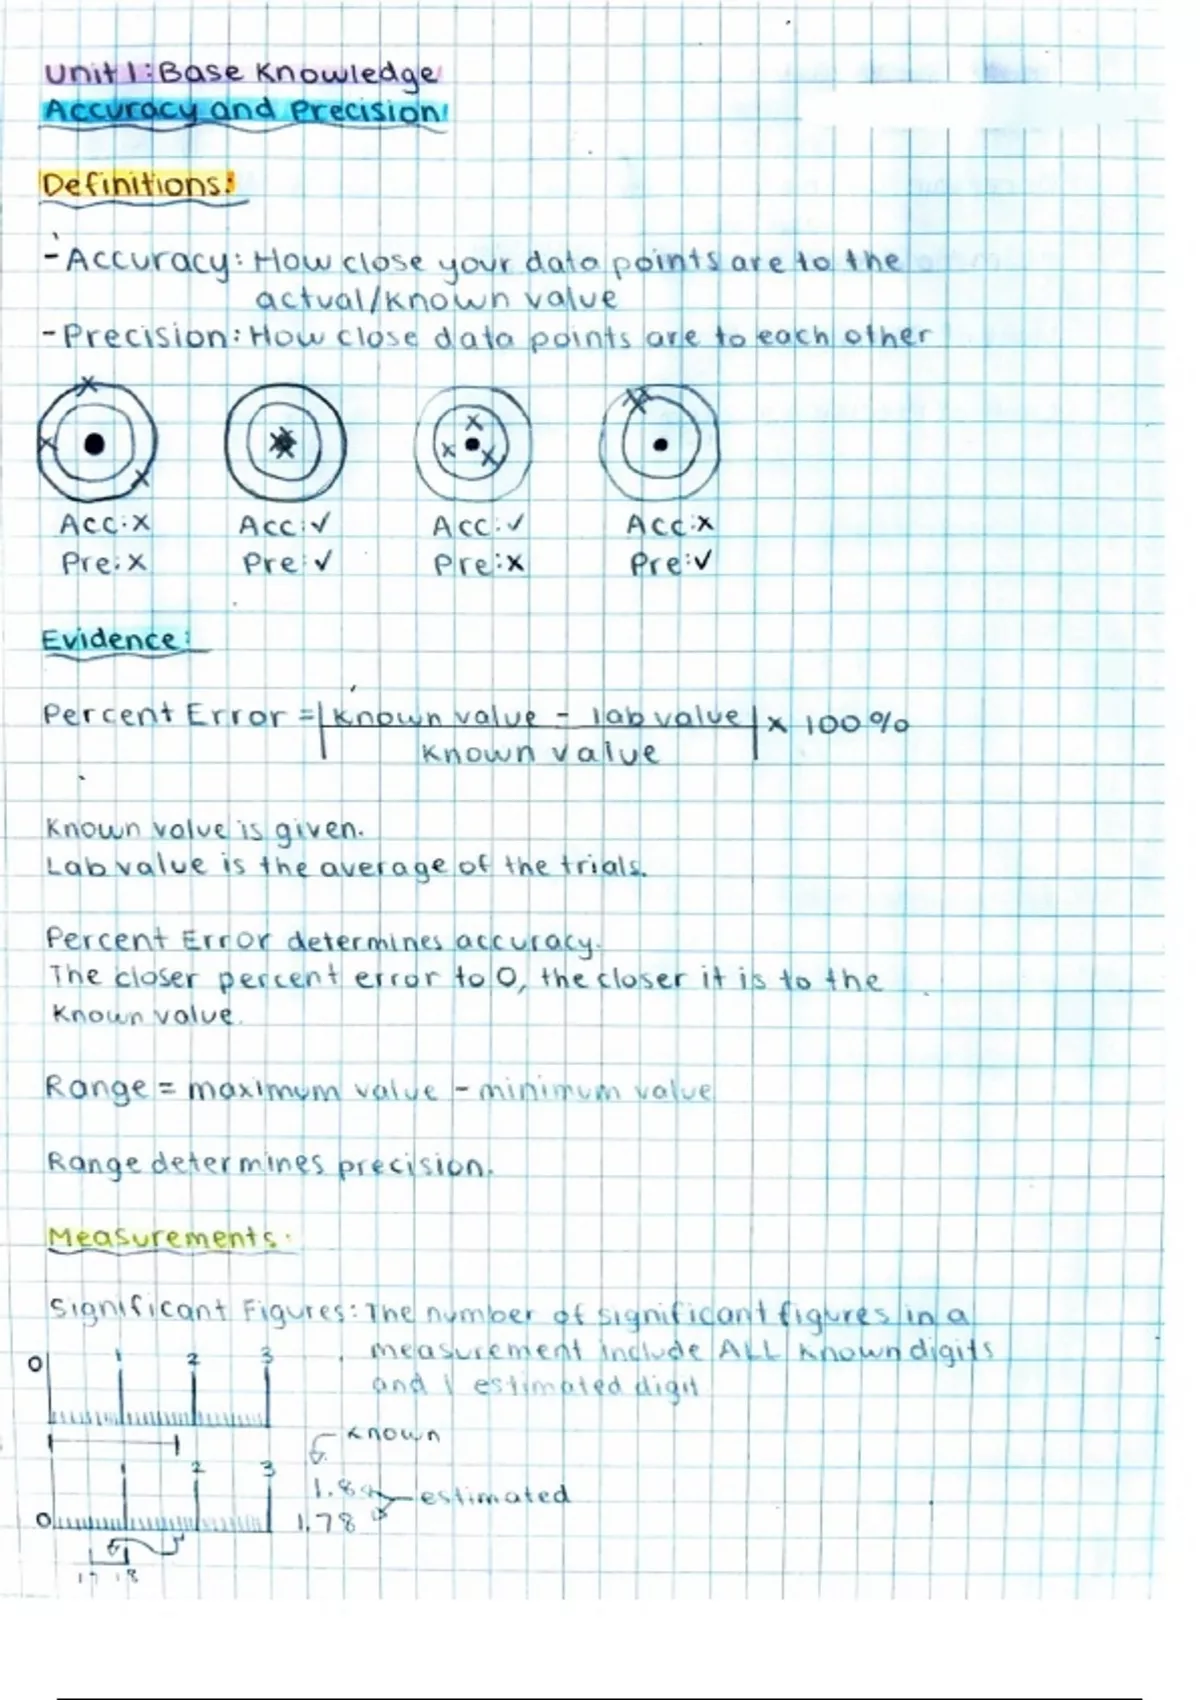 Unit 1: Base Knowledge
Accuracy and Precision
Definitions:
- Accuracy: How close your data points are to the
actual/known value
- Precision: How close data points are to each other
Acc: x Acc: ✓ Acc: ✓ Acc: x
Pre: x Pre: ✓ Pre: x Pre: ✓
Evidence:
Percent Error = | known value - lab value | x 100%
known value
Known value is given.
Lab value is the average of the trials.
Percent Error determines accuracy.
The closer percent error to 0, the closer it is to the
known value.
Range = maximum value - minimum value
Range determines precision.
Measurements:
Significant Figures: The number of significant figures in a
measurement include ALL known digits
and 1 estimated digit
0 1 2 3
known
1 2 3
1.8 estimated
0 1.78
1.7 1.8